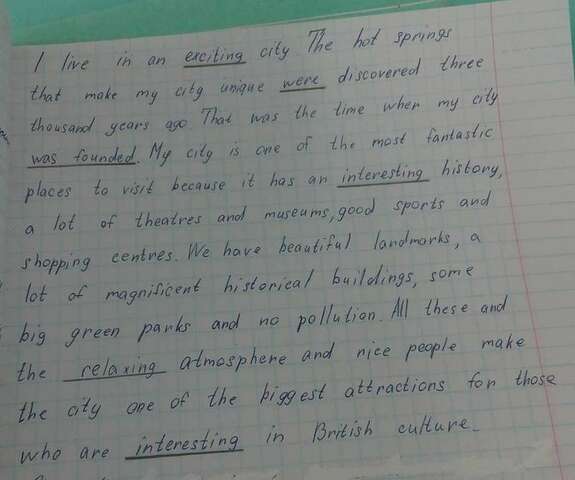 I live in an exciting city The hot springs
that make my city unique were discovered three
thousand years ago That was the time when my city
was founded. My city is one of the most fantastic
places to visit because it has an interesting history,
a lot of theatres and museums, good sports and
shopping centres. We have beautiful landmarks, a
lot of magnificent historical buildings, some
big green parks and no pollution. All these and
the relaxing atmosphere and nice people make
the city one of the biggest attractions for those
who are interesting in British culture.